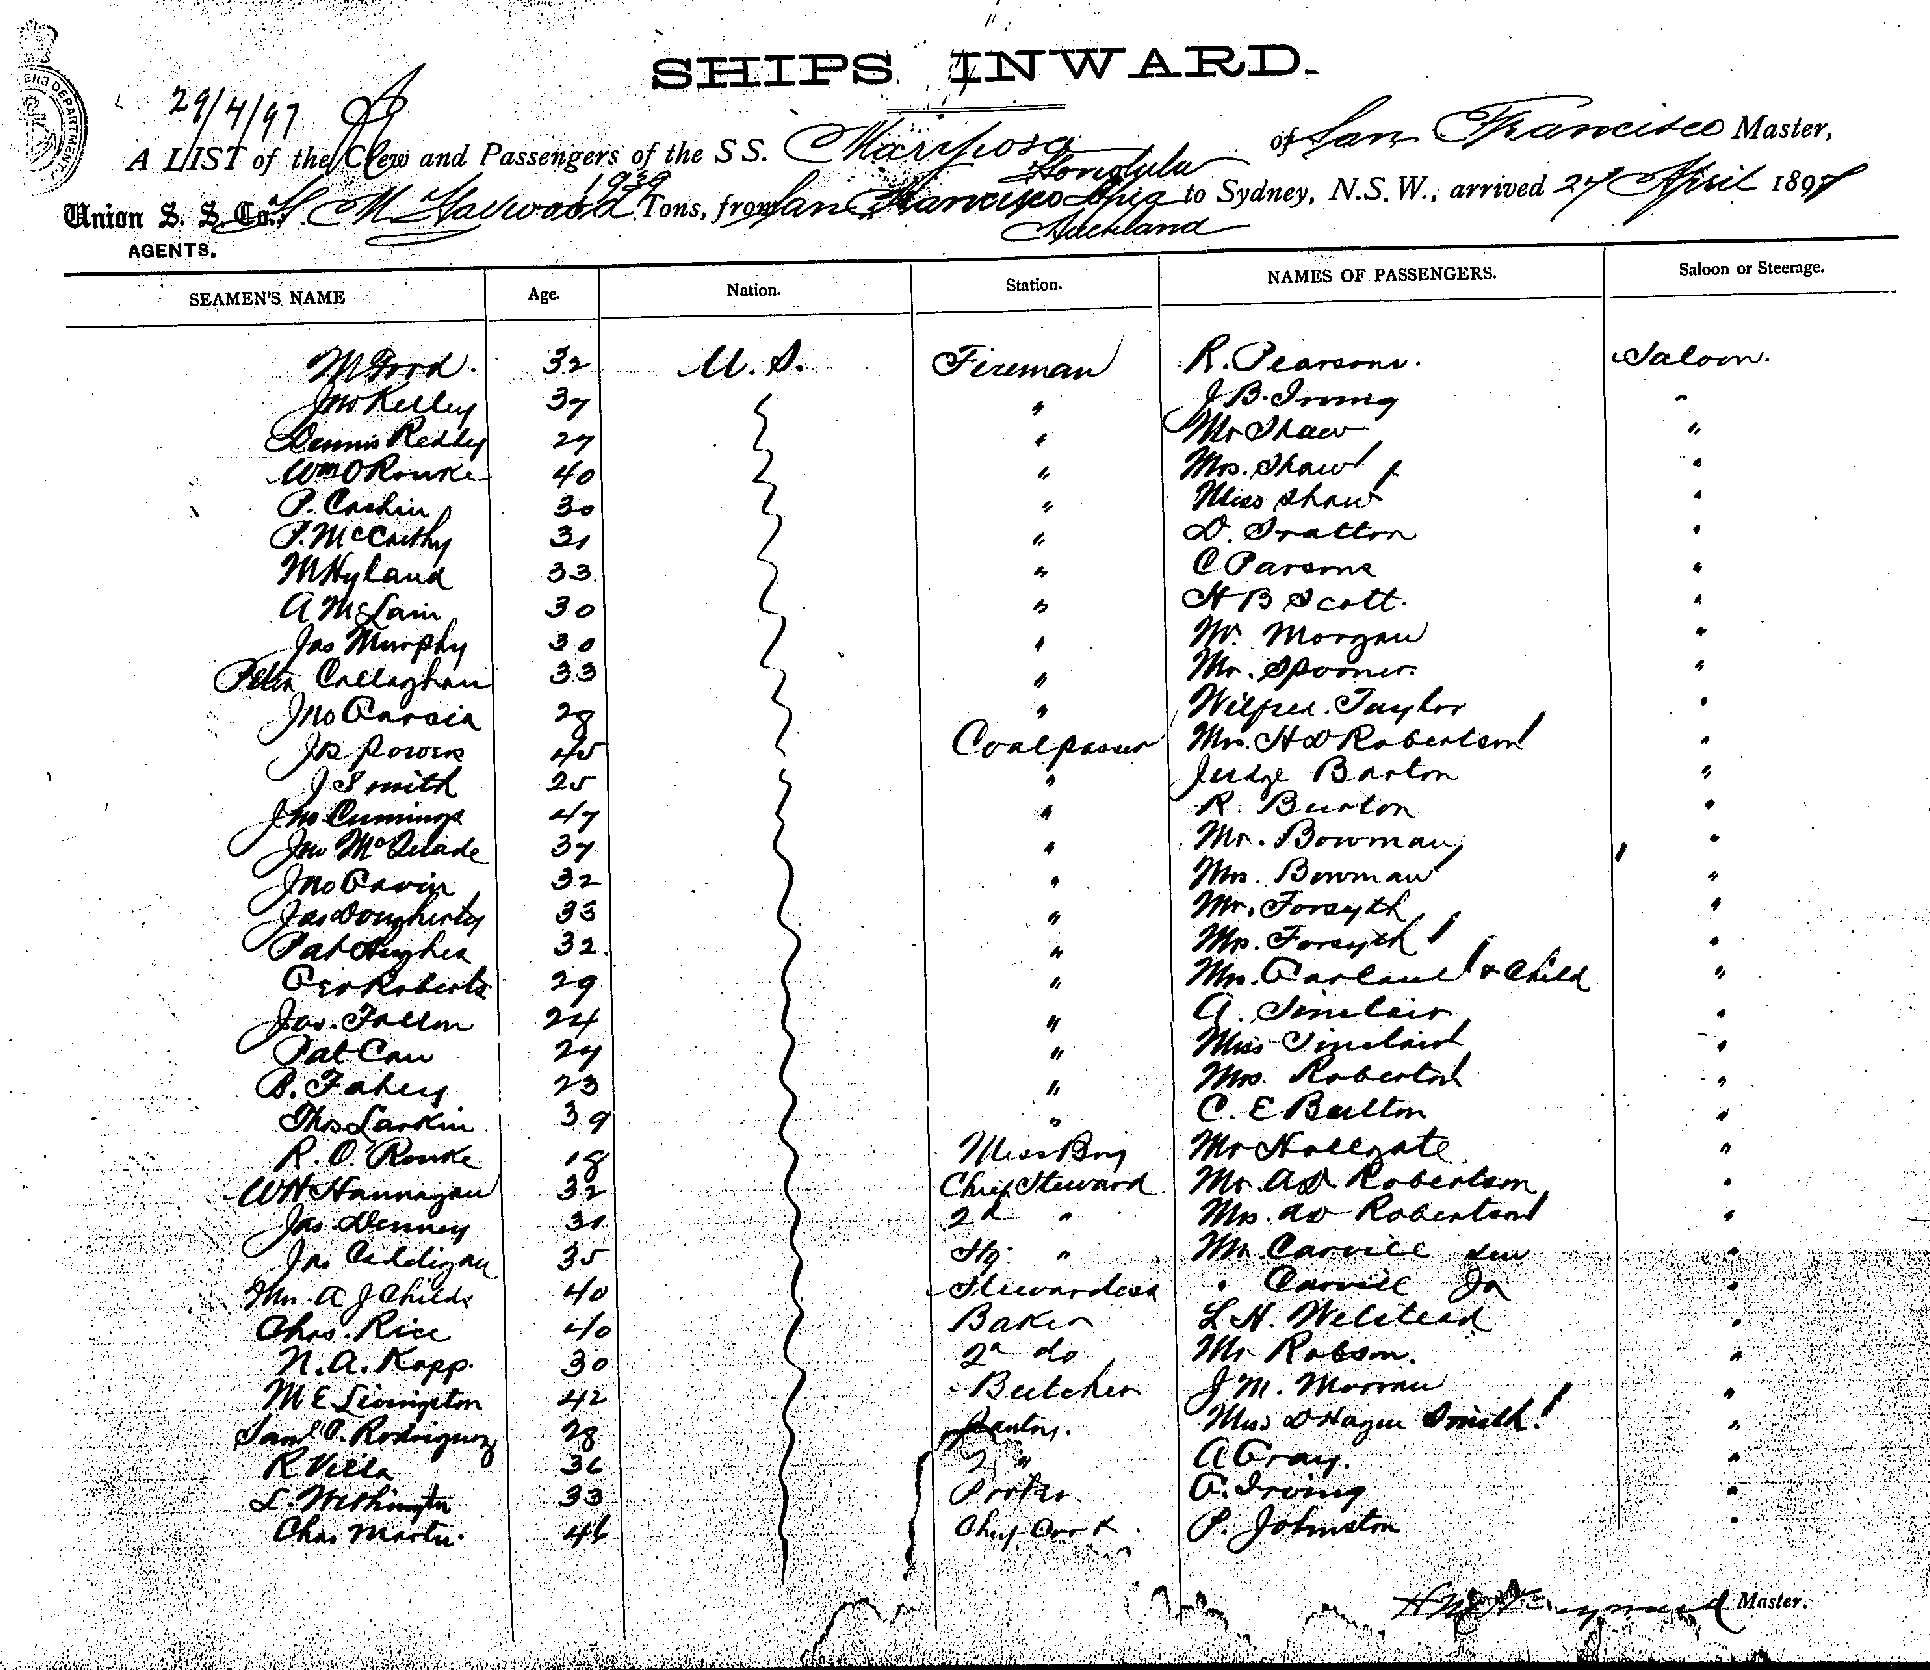 SHIPS INWARD.
29/4/97
A LIST of the Crew and Passengers of the S S. Mariposa of San Francisco Master,
Honolulu
H. M. Hayward 1939 Tons, from San Francisco Apia to Sydney, N.S.W., arrived 27 April 1897
Union S. S. Co.,
Auckland
AGENTS.
SEAMEN'S NAME Age. Nation. Station. NAMES OF PASSENGERS. Saloon or Steerage.
M Ford. 32 U. S. Fireman R. Pearsons. Saloon.
Jno Kelley 37 " J B. Irving "
Dennis Reddy 27 " Mr Shaw "
Wm O Rourke 40 " Mrs. Shaw "
P. Cashin 30 " Miss Shaw "
P. McCarthy 31 " D. Gratton "
M Hyland 33 " C Parsons "
A McLain 30 " H B Scott. "
Jas Murphy 30 " W. Morgan "
Peter Callaghan 33 " Mr. Spooner. "
Jno Garcia 28 " Wilfred. Taylor "
Jos Powers 45 Coalpasser Mrs. H D Robertson "
J Smith 25 " Judge Barton "
Jno Cummings 47 " R. Burton "
Jno McQuade 37 " Mr. Bowman "
Jno Gavin 32 " Mrs. Bowman "
Jas Dougherty 33 " Mr. Forsyth "
Pat Hughes 32. " Mrs. Forsyth "
Geo Roberts 29 " Mrs. Garland & Child "
Jas. Fallon 24 " A. Sinclair "
Pat Carr 27 " Miss Sinclair "
B. Fahey 23 " Mrs. Roberton "
Thos Larkin 39 " C. E Bulton "
R. O. Rourke 18 Mess Boy Mr Hollgate "
W H Hannagan 32 Chief Steward Mr. A D Robertson "
Jas Denney 31 2d " Mrs. A D Robertson "
Jas Ceddigan 35 Stg. " Mr Carvill Sen "
Mrs. A J Childs 40 Stewardess " Carvill Jr "
Chas. Rice 40 Baker L H. Welstead "
N. A. Kopp. 30 2d do Mr Robson. "
M E Livingston 42 Butcher J M. Morrau "
Saml O. Rodriguez 28 Pantry. Miss D Hague Smith "
R Villa 36 2 " A Gray. "
L. Withington 33 Porter. G. Irving "
Chas Martin. 46 Chief Cook. P. Johnston "
Master.